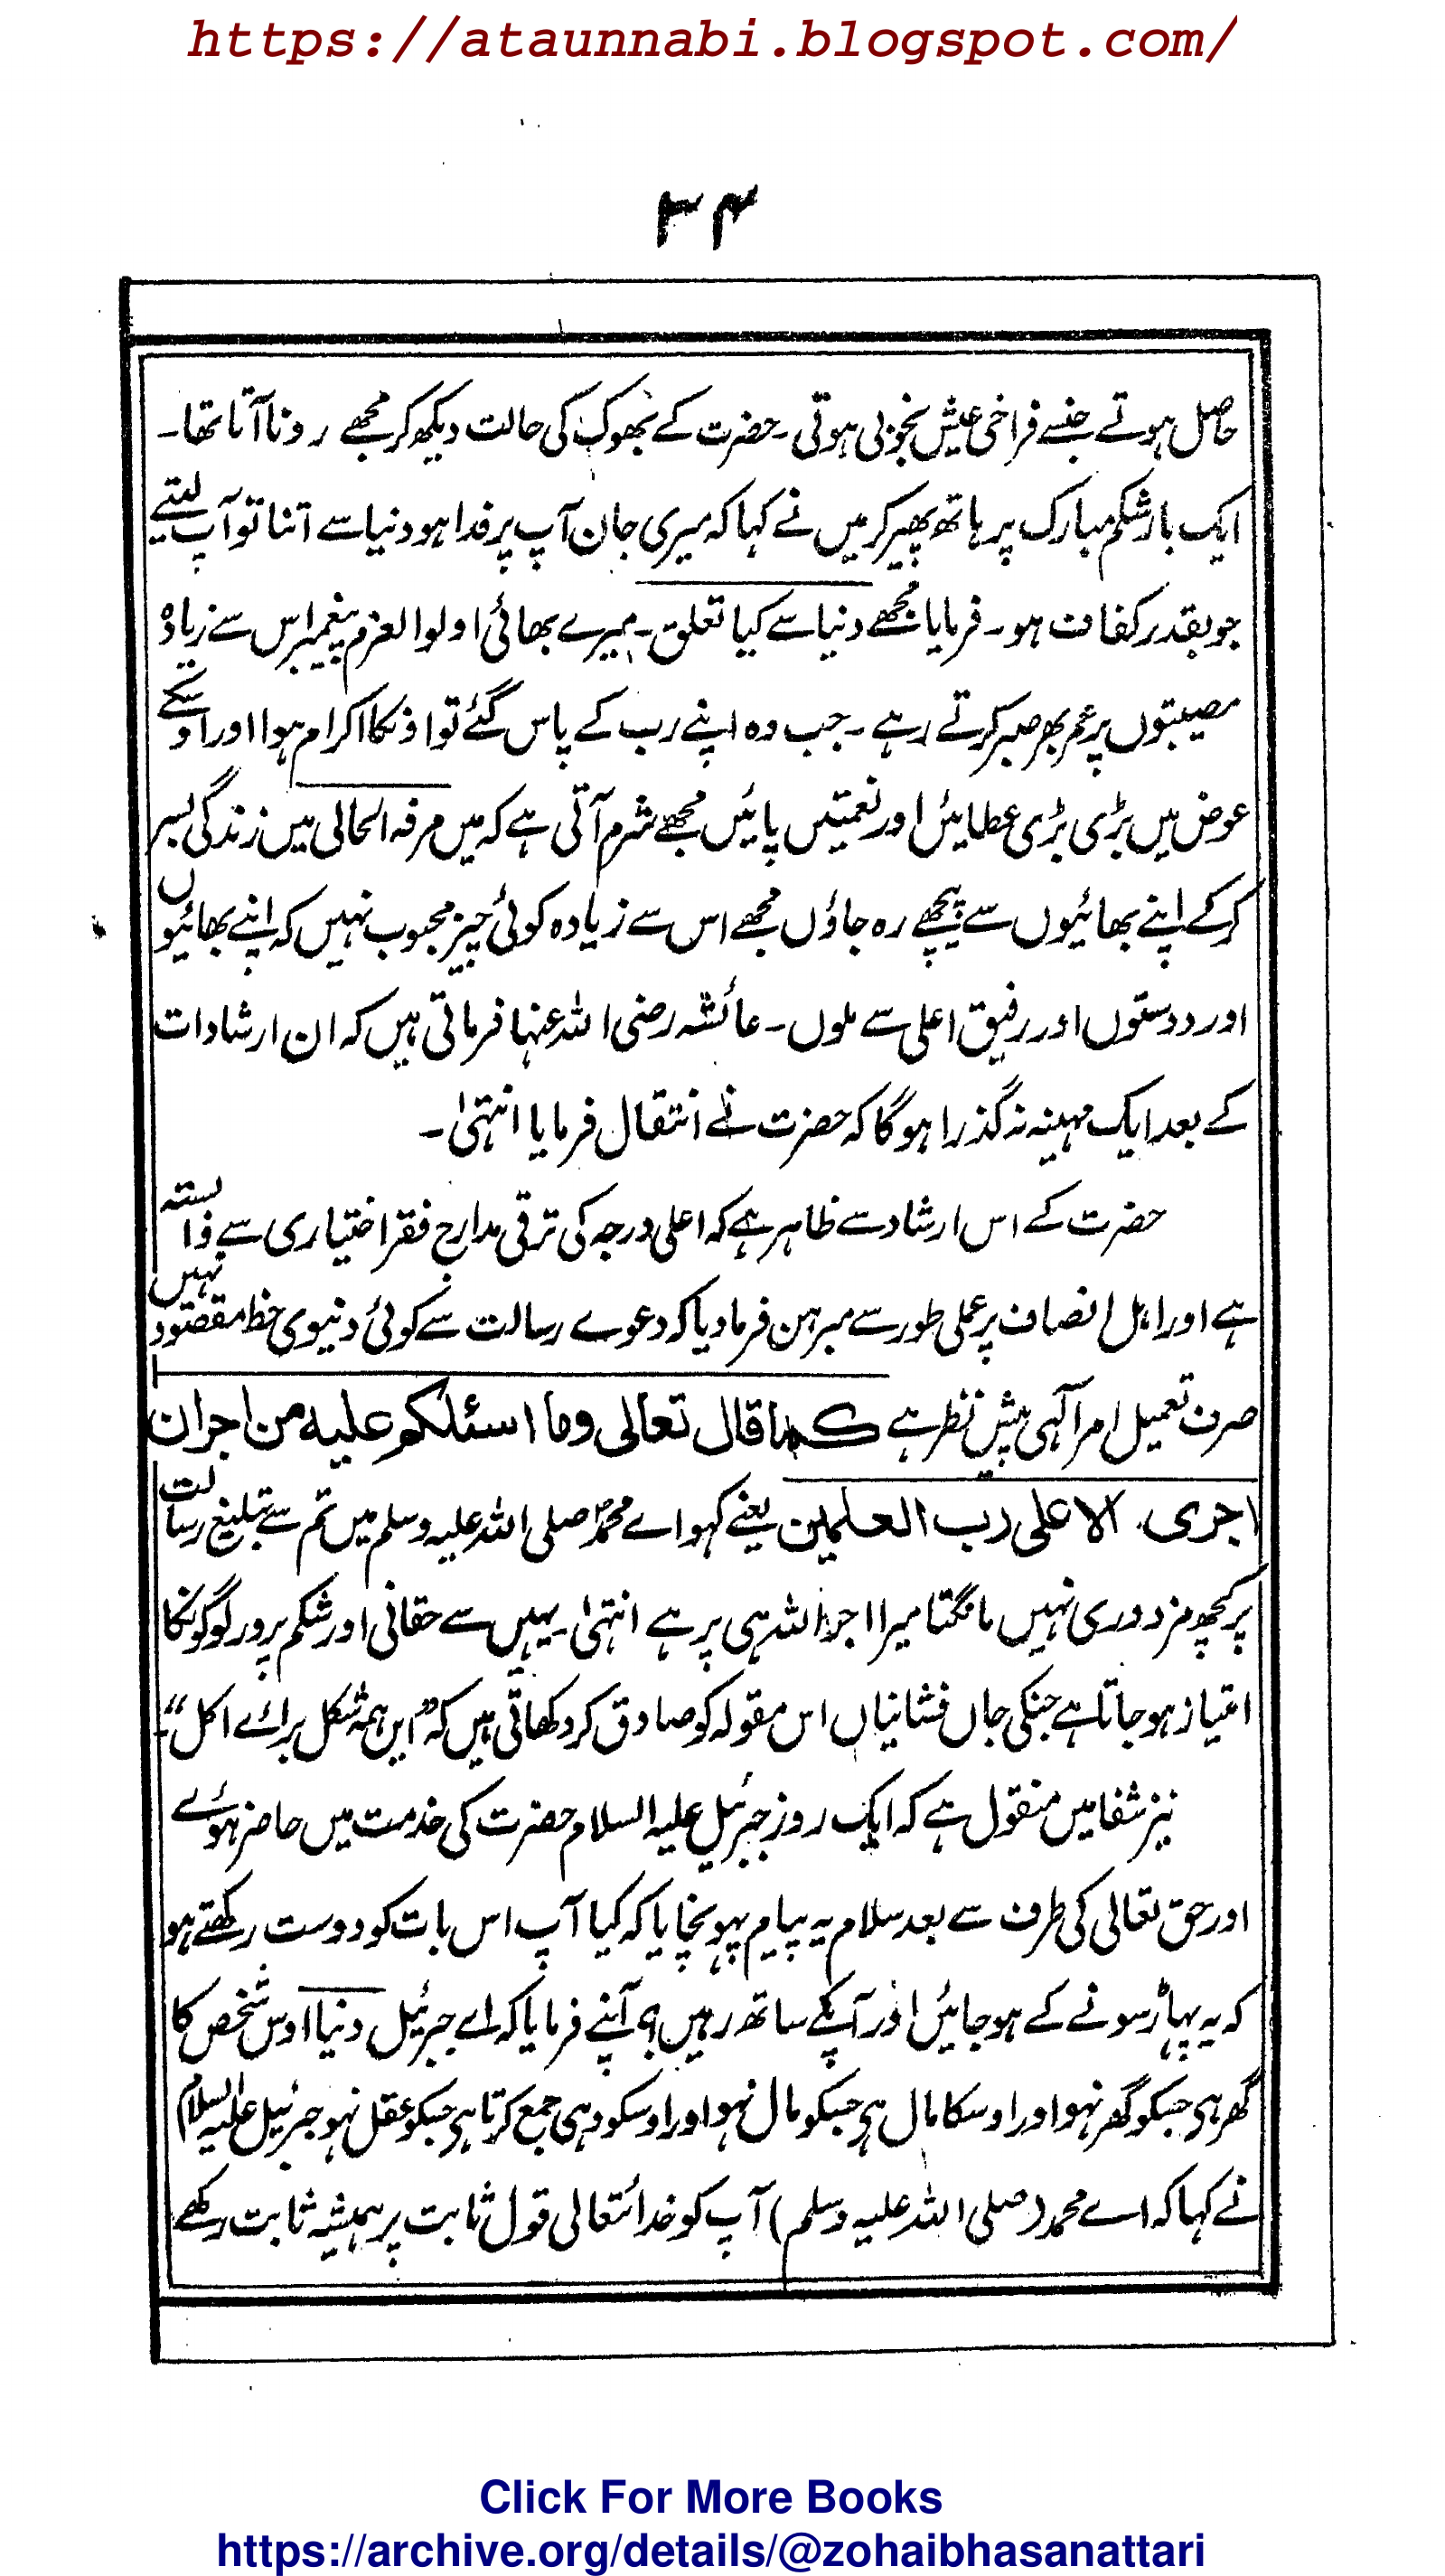 https://ataunnabi.blogspot.com/
۳۴
حاصل ہوتے جنسے فراخی عیش بخوبی ہوتی۔ حضرت کے بھوک کی حالت دیکھ کر مجھے رونا آتا تھا۔
ایک بار شکم مبارک پر ہاتھ پھیر کر میں نے کہا کہ میری جان آپ پر فدا ہو دنیا سے اتنا تو آپ لیتے
جو بقدر کفات ہو۔ فرمایا مجھے دنیا سے کیا تعلق۔ میرے بھائی اولوالعزم پیغمبر اس سے زیادہ
مصیبتوں پر عمر بھر صبر کرتے رہے۔ جب وہ اپنے رب کے پاس گئے تو اونکا اکرام ہوا اور اوسکے
عوض میں بڑی بڑی عطایئں اور نعمتیں پایئں مجھے شرم آتی ہے کہ میں مرفہ الحالی میں زندگی بسر
کرکے اپنے بھائیوں سے پیچھے رہ جاؤں مجھے اس سے زیادہ کوئی چیز محبوب نہیں کہ اپنے بھائیوں
اور دوستوں اور رفیق اعلی سے ملوں۔ عائشہ رضی اللہ عنہا فرماتی ہیں کہ ان ارشادات
کے بعد ایک مہینہ نہ گذرا ہوگا کہ حضرت نے انتقال فرمایا انتہیٰ۔
حضرت کے اس ارشاد سے ظاہر ہے کہ اعلی درجہ کی ترقی مدارج فقر اختیاری سے وابستہ
ہے اور اہل انصاف پر عملی طور سے مبرہن فرمادیا کہ دعوے رسالت سے کوئی دنیوی حظ مقصود نہیں
صرف تعمیل امر آلہی پیش نظر ہے کما قال تعالی وما اسئلکم علیہ من اجران
اجری الا علی رب العلمین یعنے کہو اے محمدؐ صلی اللہ علیہ وسلم میں تم سے تبلیغ رسالت
پر کچھ مزدوری نہیں مانگتا میرا اجر اللہ ہی پر ہے انتہیٰ۔ یہیں سے حقانی اور شکم پرور لوگونکا
امتیاز ہوجاتا ہے جنکی جاں فشانیاں اس مقولہ کو صادق کر دکھاتی ہیں کہ ”این ہمہ شکل برائے اکل“۔
نیز شفا میں منقول ہے کہ ایک روز جبرئیل علیہ السلام حضرت کی خدمت میں حاضر ہوئے
اور حق تعالی کی طرف سے بعد سلام یہ پیام پہونچایا کہ کیا آپ اس بات کو دوست رکھتے ہو
کہ یہ پہاڑ سونے کے ہوجایئں اور آپکے ساتھ رہیں؟ آپنے فرمایا کہ اے جبرئیل دنیا اوس شخص کا
گھر ہی جسکو گھر نہو اور اوسکا مال ہی جسکو مال نہو اور اوسکو وہی جمع کرتا ہی جسکو عقل نہو جبرئیل علیہ السلام
نے کہا کہ اے محمد (صلی اللہ علیہ وسلم) آپ کو خدائتعالی قول ثابت پر ہمیشہ ثابت رکھے
Click For More Books
https://archive.org/details/@zohaibhasanattari